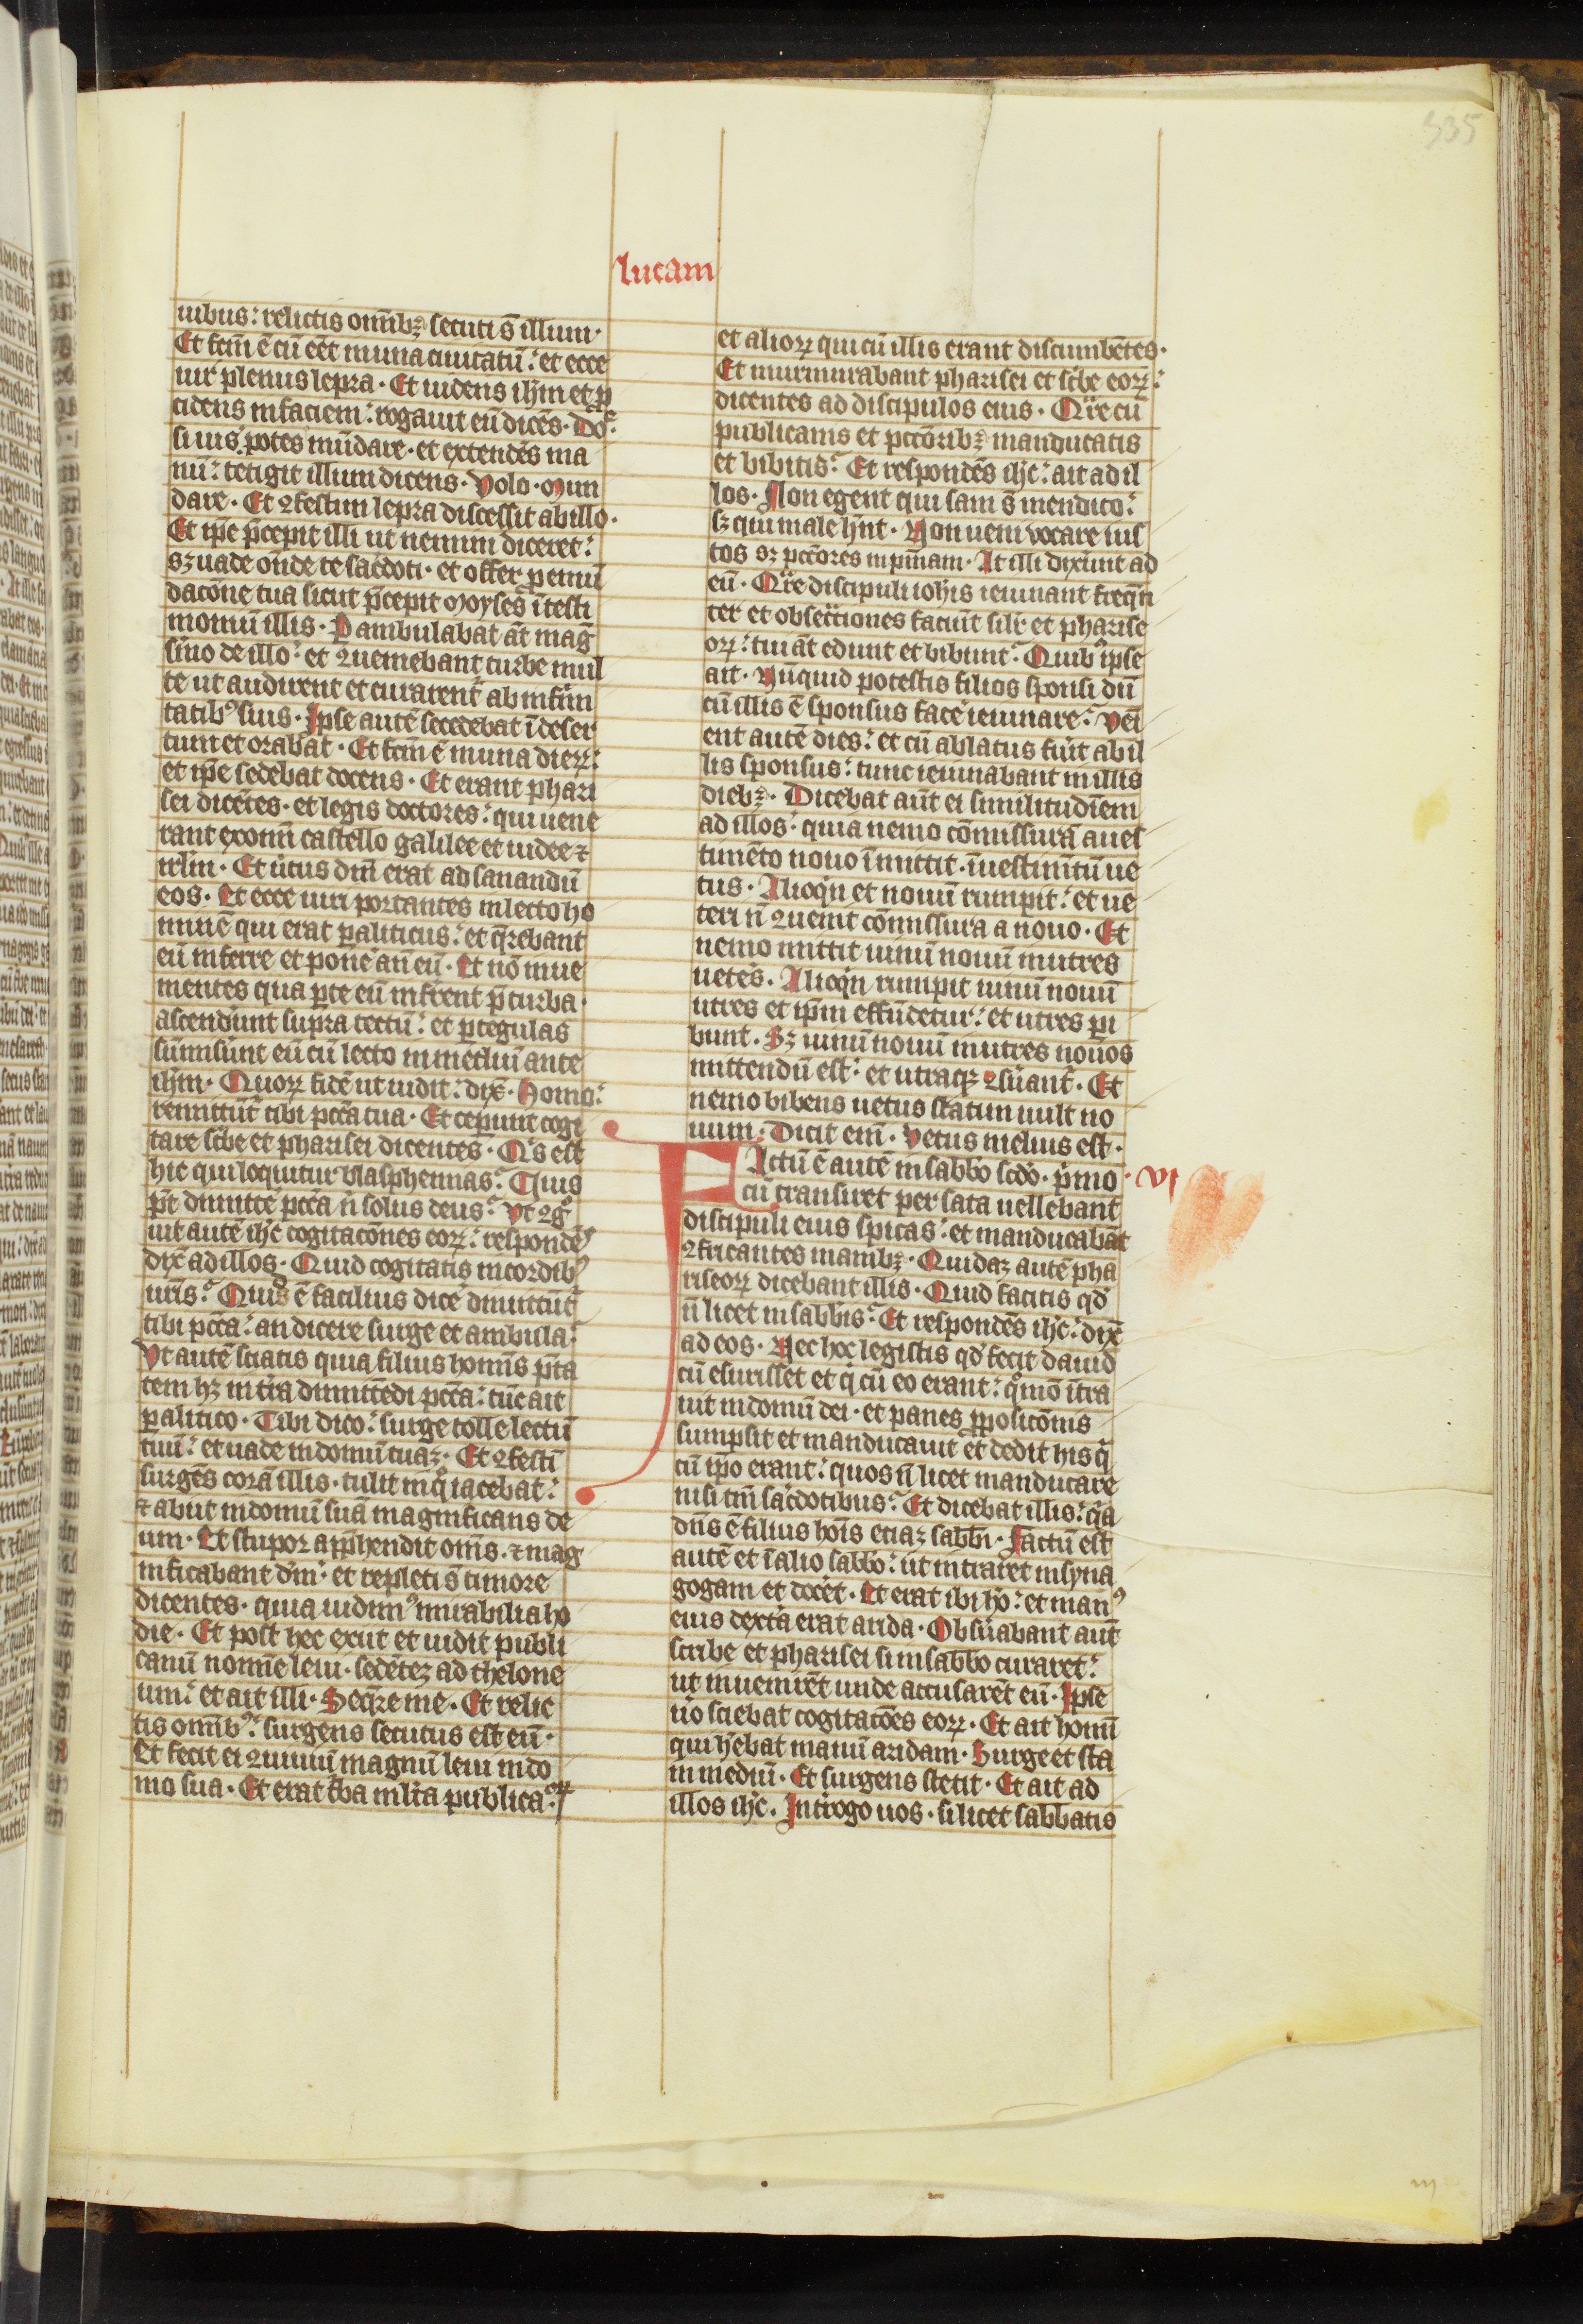 335
lucam
uibus: relictis omībꝫ secuti s̄ illum·
Et fcm̄ ē cū eēt in una ciuitatū: et ecce
uir plenus lepra· Et uidens ihm̄ et p̱
cidens in faciem: rogauit eū dicēs· Dn̄e
si uis potes mūdare· et extendēs ma
nū: tetigit illum dicens· Volo· Mun
dare· Et ꝯfestim lepra discessit ab illo·
Et ip̄e p̄cepit illi ut nemini diceret:
sꝫ uade onde te sac̄doti· et offer p̱ emū
dacōne tua sicut p̄cepit Moyses ī testi
moniū illis· Pambulabat āt maḡ
sermo de illo: et ꝯueniebant turbe mul
te ut audirent et curarent̄ ab infirmi
tatibꝰ suis· Ipse autē secedebat ī deser
tum et orabat· Et fcm̄ ē in una dieꝝ:
et ip̄e sedebat docens· Et erant phari
sei dicētes· et legis doctores: qui uene
rant ex omni castello galilee et iudee ⁊
irlm̄· Et uirtus dn̄i erat ad sanandū
eos· Et ecce uiri portantes in lecto ho
minē qui erat p̱aliticus: et q̄rebant
eū inferre et pone an̄ eū· Et nō inue
nientes qua p̱te eū inferent p̄ turba·
ascendunt supra tectū: et p̱ tegulas
sūmiserunt eū cū lecto in mediū ante
ihm̄· Quoꝝ fidē ut uidit: dix̄· Homo:
remittūt̄ tibi pccā tua· Et ceperunt cogi
tare scͥbe et pharisei dicentes· Qͥs est
hic qui loquitur blasphemias? Quis
pt̄ dimitte pccā n̄ solus deus? Vt ꝯgͦ
uit autē ihc̄ cogitacōnes eoꝝ: respondēs
dix̄ ad illos· Quid cogitatis in cordibꝰ
uris? Quid ē facilius dice dimittūt̄
tibi pccā: an dicere surge et ambula:
Vt autē sciatis quia filius homīs p̄ta
tem hꝫ in tr̄a dimittēdi pccā: tūc ait
p̱alitico· Tibi dico: surge tolle lectū
tuū: et uade in domū tuaꝫ· Et ꝯfestī
surgēs corā illis· tulit in q̊ iacebat:
⁊ abiit in domū suā magnificans de
um· Et stupor app̄hendit oms̄· ⁊ mag
nificabant dm̄· et repleti s̄ timore
dicentes· quia uidimꝰ mirabilia ho
die· Et post hec exiit et uidit publi
canū nomīe leui· sedētēꝫ ad thelone
um: et ait illi· Seq̄re me· Et relic
tis omībꝰ: surgens secutus est eū·
Et fecit ei ꝯuiuiū magnū leui in do
mo sua· Et erat tͥba mlta publicaoꝝ·
et alioꝝ qui cū illis erant discumbētes·
Et murmurabant pharisei et scͥbe eoꝝ:
dicentes ad discipulos eius· Qͣre cū
publicanis et pccōribꝫ manducatis
et bibitis? Et respondēs ihc̄: ait ad il
los· Non egent qui sani s̄ mendico:
sꝫ qui male hn̄t· Non ueni vocare ius
tos sꝫ pccōres in pn̄iam· At illi dixerunt ad
eū· Qͣre discipuli iohis ieiunant freqn̄
ter et obsecͣtiones faciūt silr̄ et pharise
oꝝ: tui āt edunt et bibunt? Quibꝰ ipse
ait· Nūquid potestis filios sponsi dū
cū illis ē sponsus face ieiunare? Veni
ent autē dies: et cū ablatus fuit ab il
lis sponsus: tunc ieiunabant in illis
diebꝫ· Dicebat aūt ei similitudīem
ad illos: quia nemo cōmissurā a ues
timēto nouo īmittit· ī uestimētū ue
tus· Alioqͥn et nouū rumpit: et ue
teri n̄ ꝯuenit cōmissura a nouo· Et
nemo mittit uinū nouū in utres
uetēs· Alioqͥn rumpit uinū nouū
utres et ip̄m effūdetur: et utres p̱i
bunt· Sꝫ uinū nouū in utres nouos
mittendū est: et utraqꝫ ꝯseruant̄· Et
nemo bibens uetus statim uult no
uum· Dicit em̄· Vetus melius est·
Factū ē autē in sabbo scdo· pͥmo· VI
cū transiret per sata uellebant
discipuli eius spicas: et manducabāt
ꝯfricantes manibꝫ· Quidaꝫ autē pha
riseoꝝ dicebant illis· Quid facitis qd̄
n̄ licet in sabbis? Et respondēs ihc̄: dix̄
ad eos· Nec hoc legistis qd̄ fecit dauid
cū esurisset et qͥ cū eo erant: qͦmō ītra
uit in domū dei· et panes p̱posicōnis
sumpsit et manducauit et dedit his qͥ
cū ip̄o erant: quos n̄ licet manducare
nisi tm̄ sac̄dotibus? Et dicebat illis: qͥa
dn̄s ē filius hoīs etiaꝫ sabbi· Factū est
autē et ī alio sabbo: ut intraret in syna
gogam et docēt· Et erat ibi ho: et manꝰ
eius dextͣa erat arida· Obseruabant aūt
scribe et pharisei si in sabbo curaret:
ut inuenirēt unde accusarēt eū· Ipse
uͦo sciebat cogitacōes eoꝝ· Et ait homī
qui hēbat manū aridam· Surge et sta
in mediū· Et surgens stetit· Et ait ad
illos ihc̄· Introgo uos· si licet sabbatis